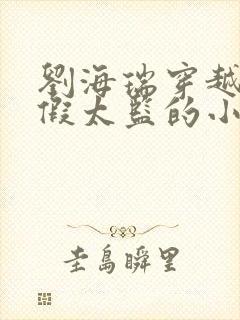 劉海瑞穿越
假太監的小
圭島瞬里